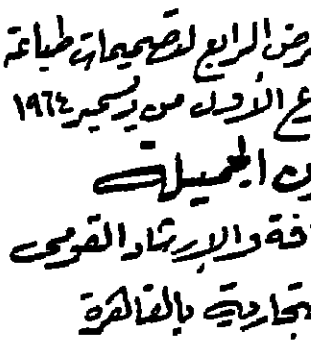 رض الرابع لتصميمات طباعة
ع الأول من ديسمبر ١٩٦٤
ون الجميلة
افة والإرشاد القومى
تجارية بالقاهرة